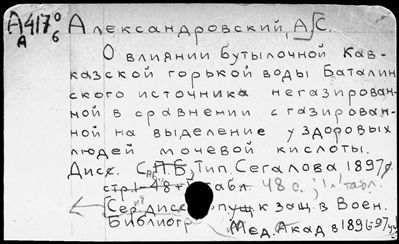 А417 0/6 Александровский, А.С.
А
О влиянии бутылочной Кав-
казской горькой воды Баталин
ского источника негазирован-
ной в сравнении с газирован-
ной на выделение у здоровых
людей мочевой кислоты.
Дисс. С.П.Б, Тип. Сегалова 1897г.
стр. 1-48+1 табл. 48 с., 1 л. табл.
Сер. дисс. допущ к защ. в Воен.
Библиогр
Мед. Акад в 1896-97